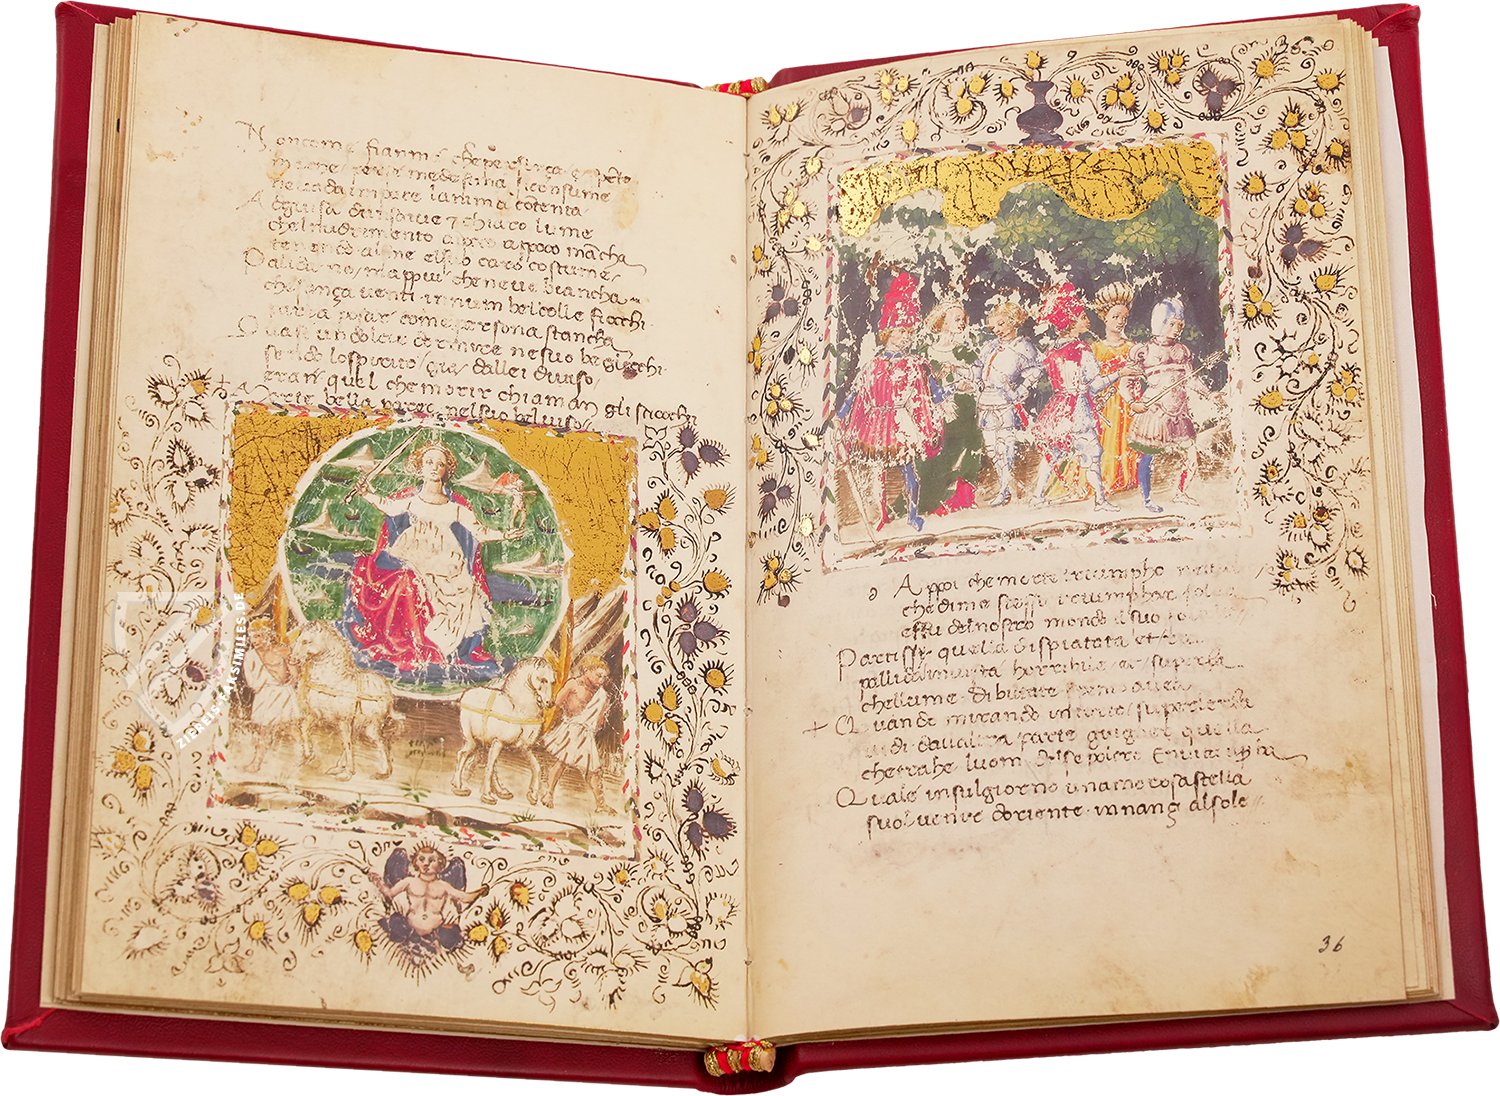 Non come fiamma che per forza e speto
che per se medesima si consume
se nanda in pace lanima contenta
A guisa dun soave & chiaro lume
chel nudrimento a poco a poco mācha
tenendo al fine el suo caro costume
Palida no/ma piu che neve biancha
che sança venti in un bel colle fiocchi
parea posar come persona stancha
Quasi un dolce dormire ne suo begiocchi
sendo lo spirito/gia dallei diviso/
eran quel che morir chiaman gli sciocchi
morte bella parea nel suo bel viso
ZIEREIS FACSIMILES.DE
36
A ppoi che morte triumpho
che di me stesso triumphar solea
et fu del nostro mondo il suo sol
Partissi quella dispiatata et
pallida in vista horribile et superba
chel lume di biltate spento avea
Quando mirando intorno/su per lerba
vidi dallaltra parte giugner quella
che trahe luom del sepolcro
Quale in sul giorno una morosa stella
suol venire doriente innanzi al sole
36